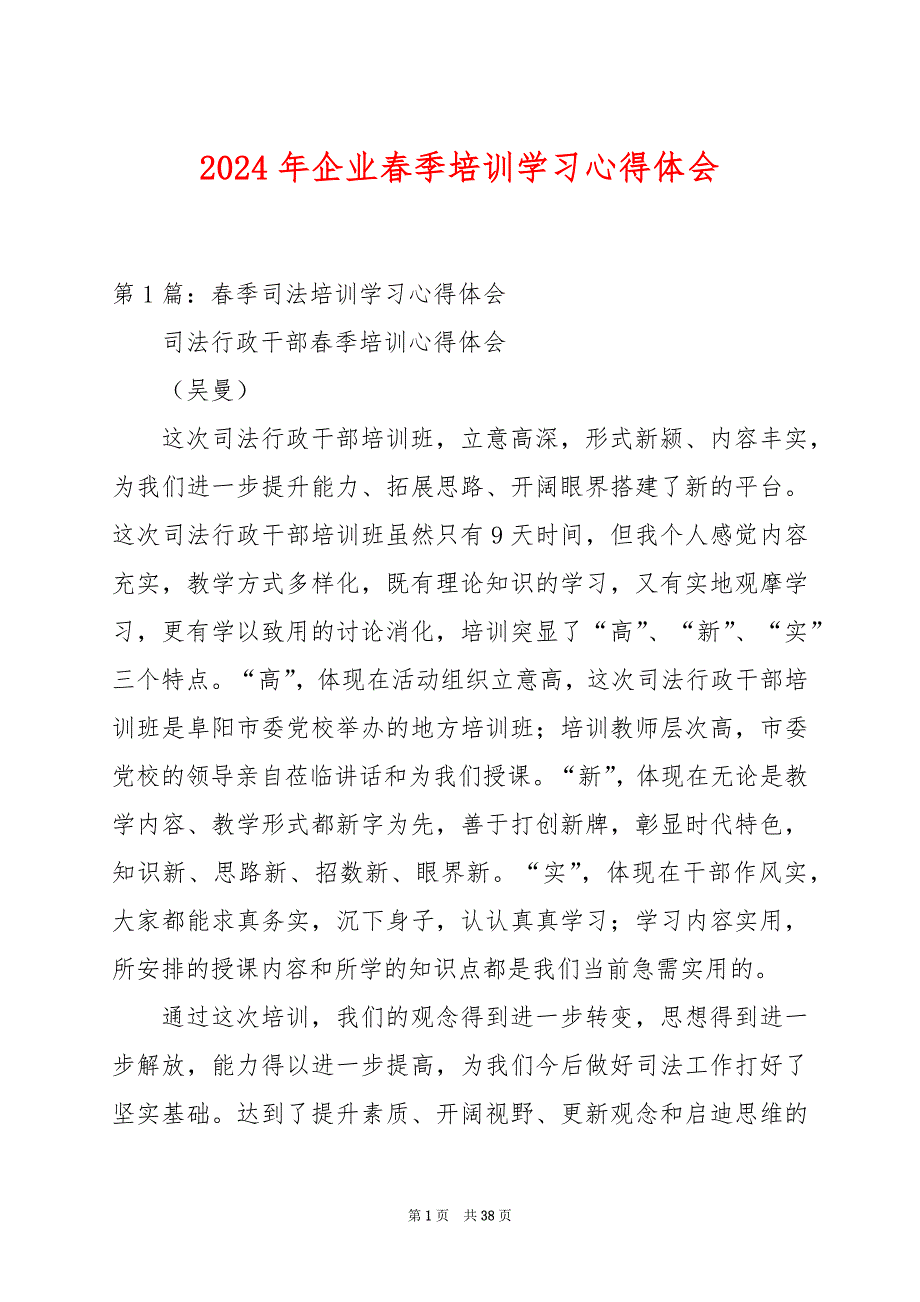 2024 年企业春季培训学习心得体会
第 1 篇：春季司法培训学习心得体会
司法行政干部春季培训心得体会
（吴曼）
这次司法行政干部培训班，立意高深，形式新颍、内容丰实，
为我们进一步提升能力、拓展思路、开阔眼界搭建了新的平台。
这次司法行政干部培训班虽然只有 9 天时间，但我个人感觉内容
充实，教学方式多样化，既有理论知识的学习，又有实地观摩学
习，更有学以致用的讨论消化，培训突显了“高”、“新”、“实”
三个特点。“高”，体现在活动组织立意高，这次司法行政干部培
训班是阜阳市委党校举办的地方培训班；培训教师层次高，市委
党校的领导亲自莅临讲话和为我们授课。“新”，体现在无论是教
学内容、教学形式都新字为先，善于打创新牌，彰显时代特色，
知识新、思路新、招数新、眼界新。“实”，体现在干部作风实，
大家都能求真务实，沉下身子，认认真真学习；学习内容实用，
所安排的授课内容和所学的知识点都是我们当前急需实用的。
通过这次培训，我们的观念得到进一步转变，思想得到进一
步解放，能力得以进一步提高，为我们今后做好司法工作打好了
坚实基础。达到了提升素质、开阔视野、更新观念和启迪思维的
第 1 页 共 38 页